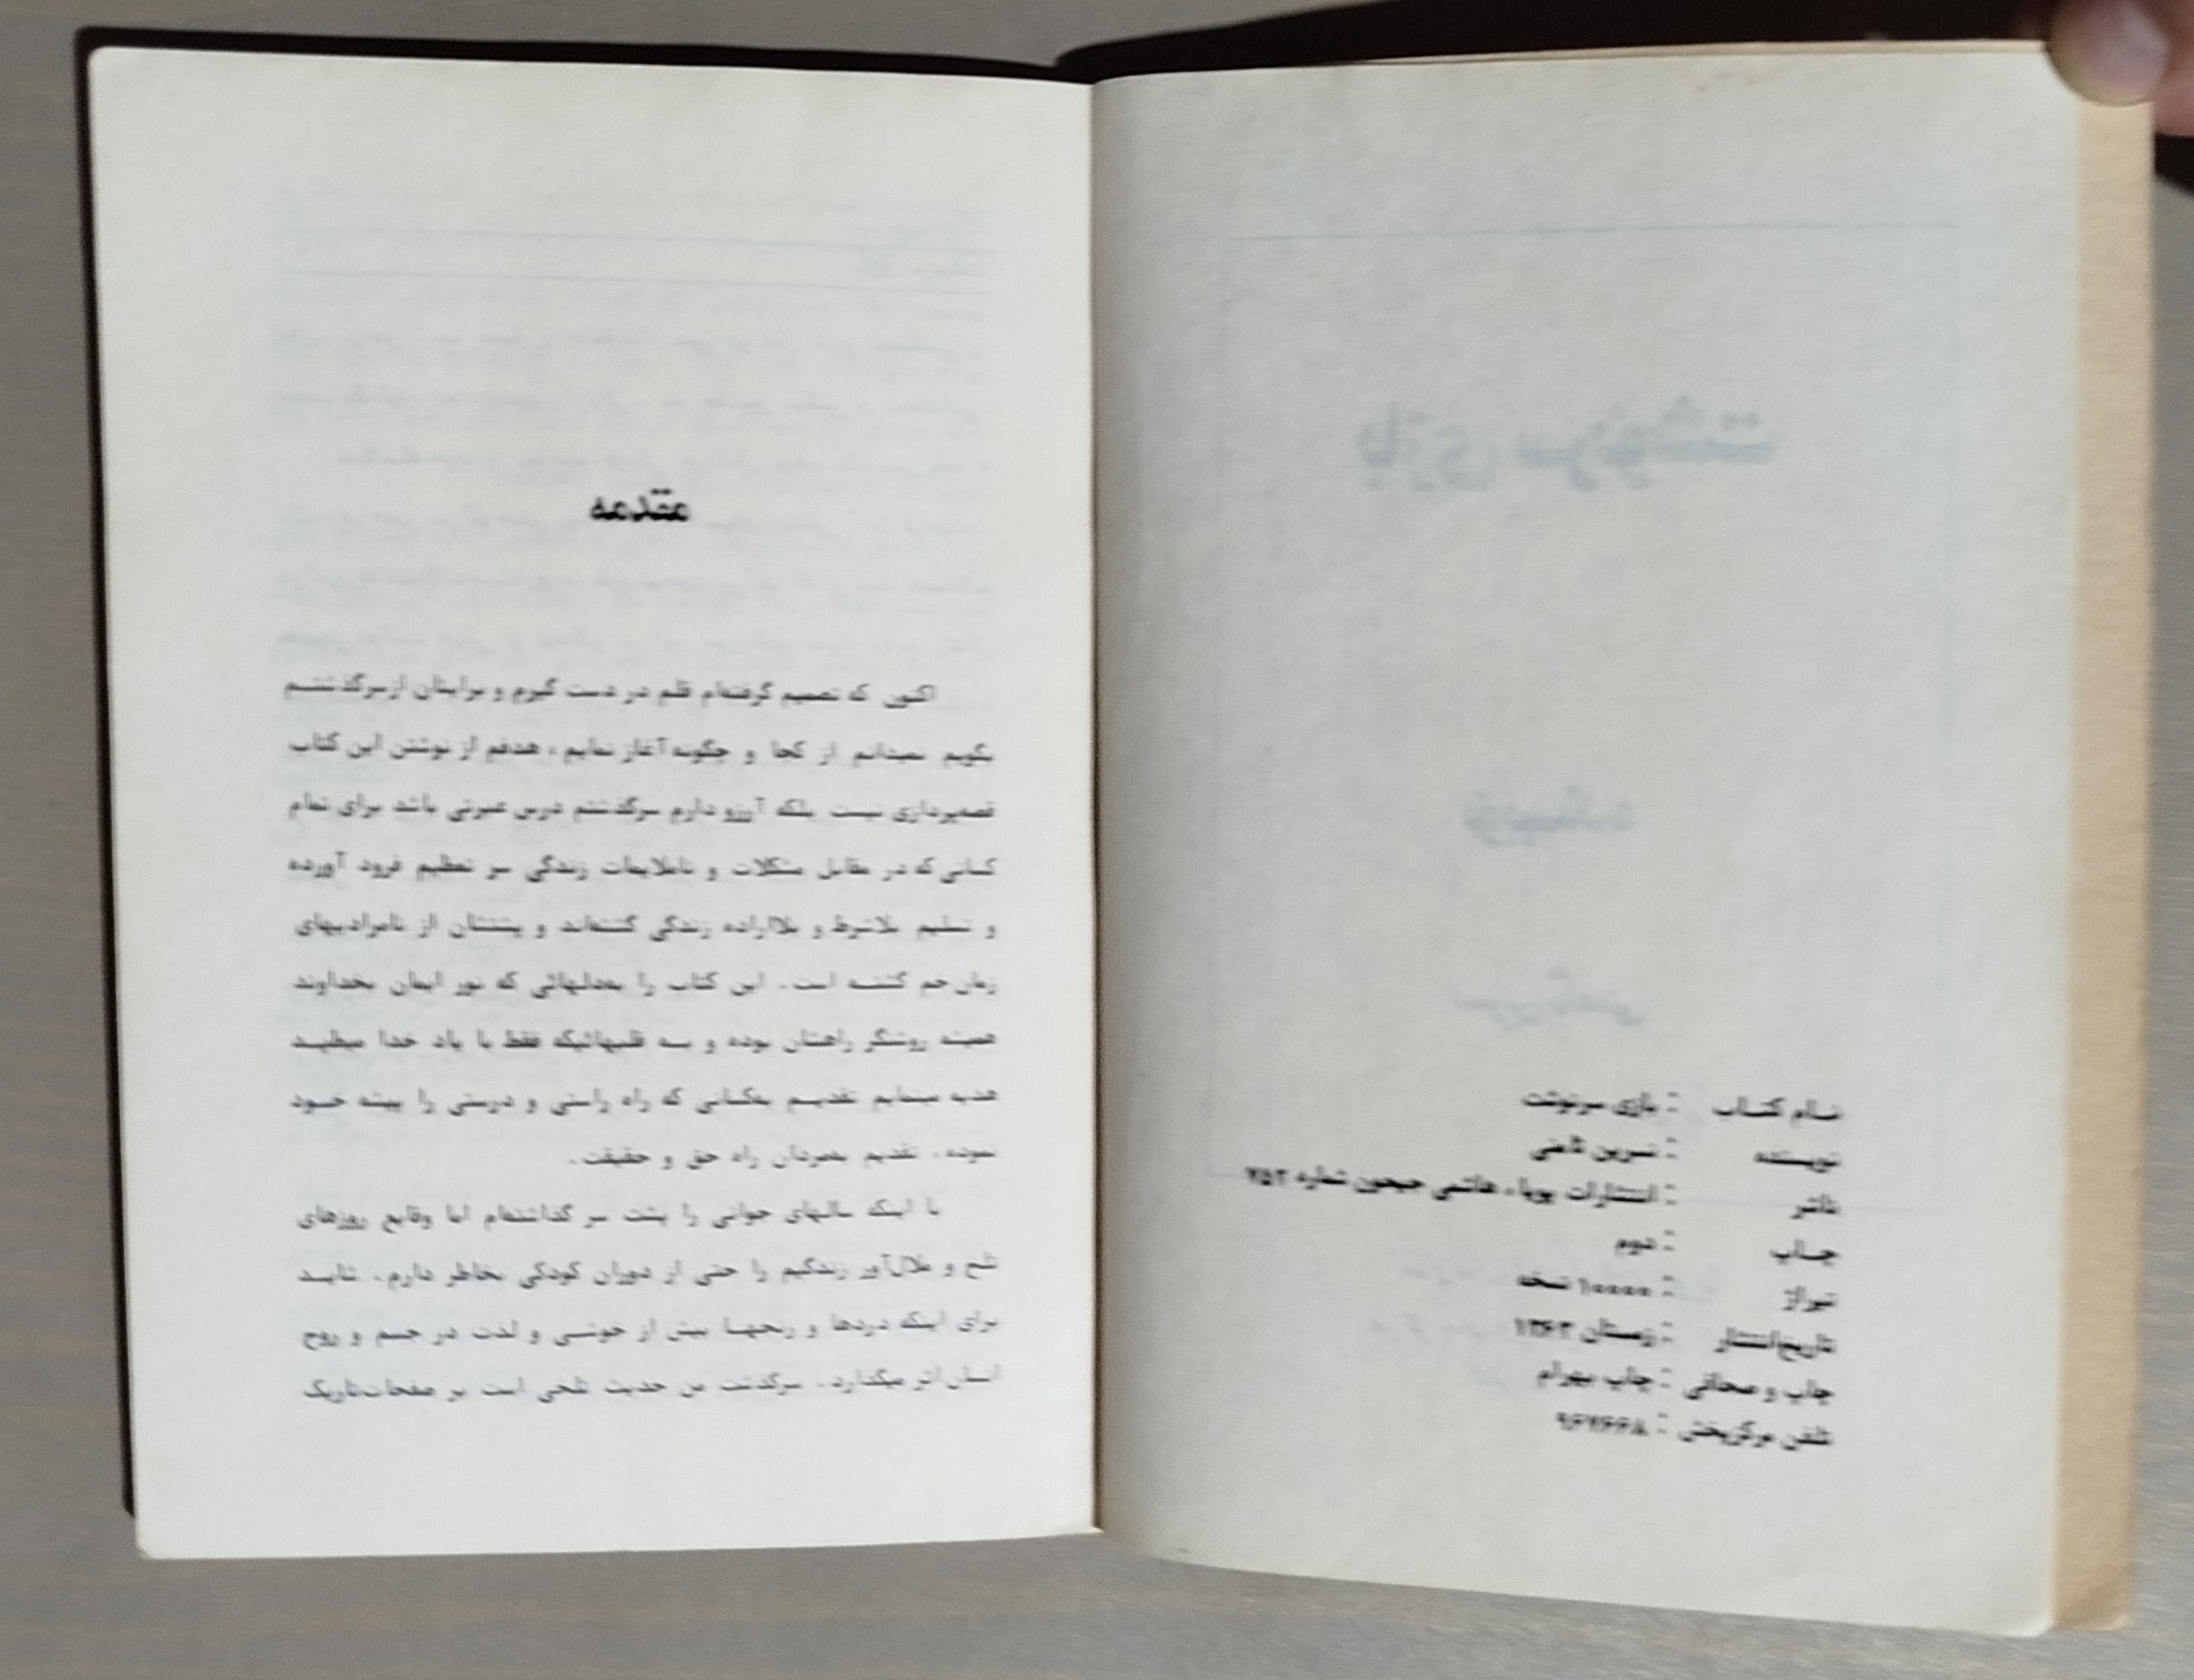 نام کتاب : بازی سرنوشت
نویسنده : نسرین ثامنی
ناشر : انتشارات پویا، هاشمی جیحون شماره ۷۵۲
چاپ : دوم
تیراژ : ۱۰۰۰۰ نسخه
تاریخ انتشار : زمستان ۱۳۶۳
چاپ و صحافی : چاپ بهرام
تلفن مرکز پخش : ۹۶۷۶۶۸
مقدمه
اکنون که تصمیم گرفته‌ام قلم در دست گیرم و برایتان از سرگذشتم
بگویم نمیدانم از کجا و چگونه آغاز نمایم، هدفم از نوشتن این کتاب
قصه‌پردازی نیست بلکه آرزو دارم سرگذشتم درس عبرتی باشد برای تمام
کسانی که در مقابل مشکلات و ناملایمات زندگی سر تعظیم فرود آورده
و تسلیم بلاشرط و بلااراده زندگی گشته‌اند و پشتشان از نامرادیهای
زمان خم گشته است. این کتاب را به‌دلهائی که نور ایمان بخداوند
همیشه روشنگر راهشان بوده و به قلبهائیکه فقط با یاد خدا میطپد
هدیه مینمایم تقدیم به‌کسانی که راه راستی و درستی را پیشه خود
نموده، تقدیم بمردان راه حق و حقیقت.
با اینکه سالهای جوانی را پشت سر گذاشته‌ام اما وقایع روزهای
تلخ و ملال‌آور زندگیم را حتی از دوران کودکی بخاطر دارم، شاید
برای اینکه دردها و رنجها بیش از خوشی و لذت در جسم و روح
انسان اثر میگذارد. سرگذشت من حدیث تلخی است بر صفحات تاریک